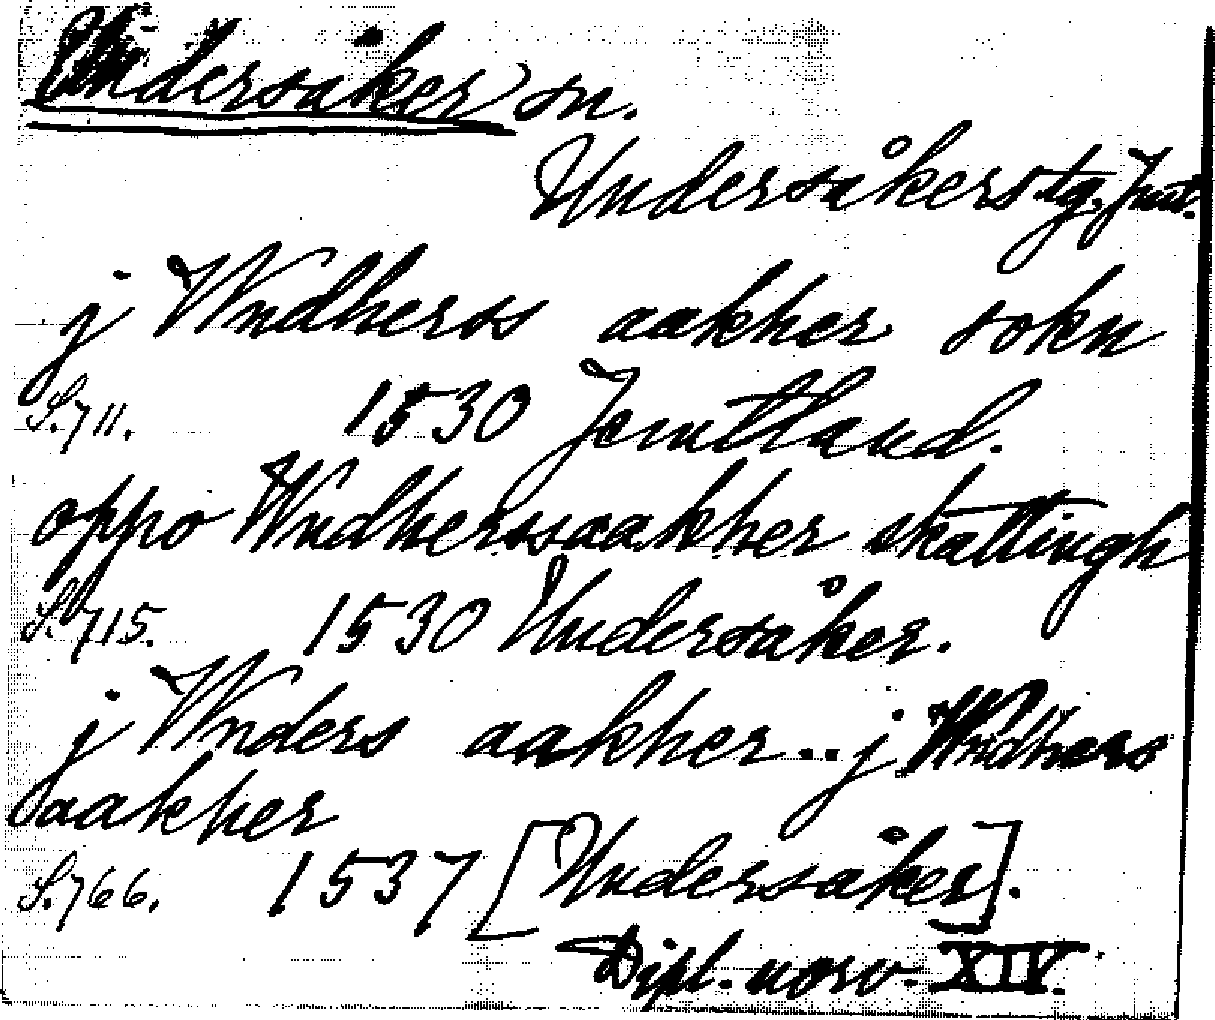 Undersåker sn.
Undersåkers tg. Jmt.
j Wndherss aakher sokn
S. 711. 1530 Jemtland.
oppo Wndherssaakher skattingh
S. 715. 1530 Undersåker.
j Wnders aakher .. j Wndhers
aakher
S. 766. 1537 [Undersåker].
Dipl. norv. XIV.